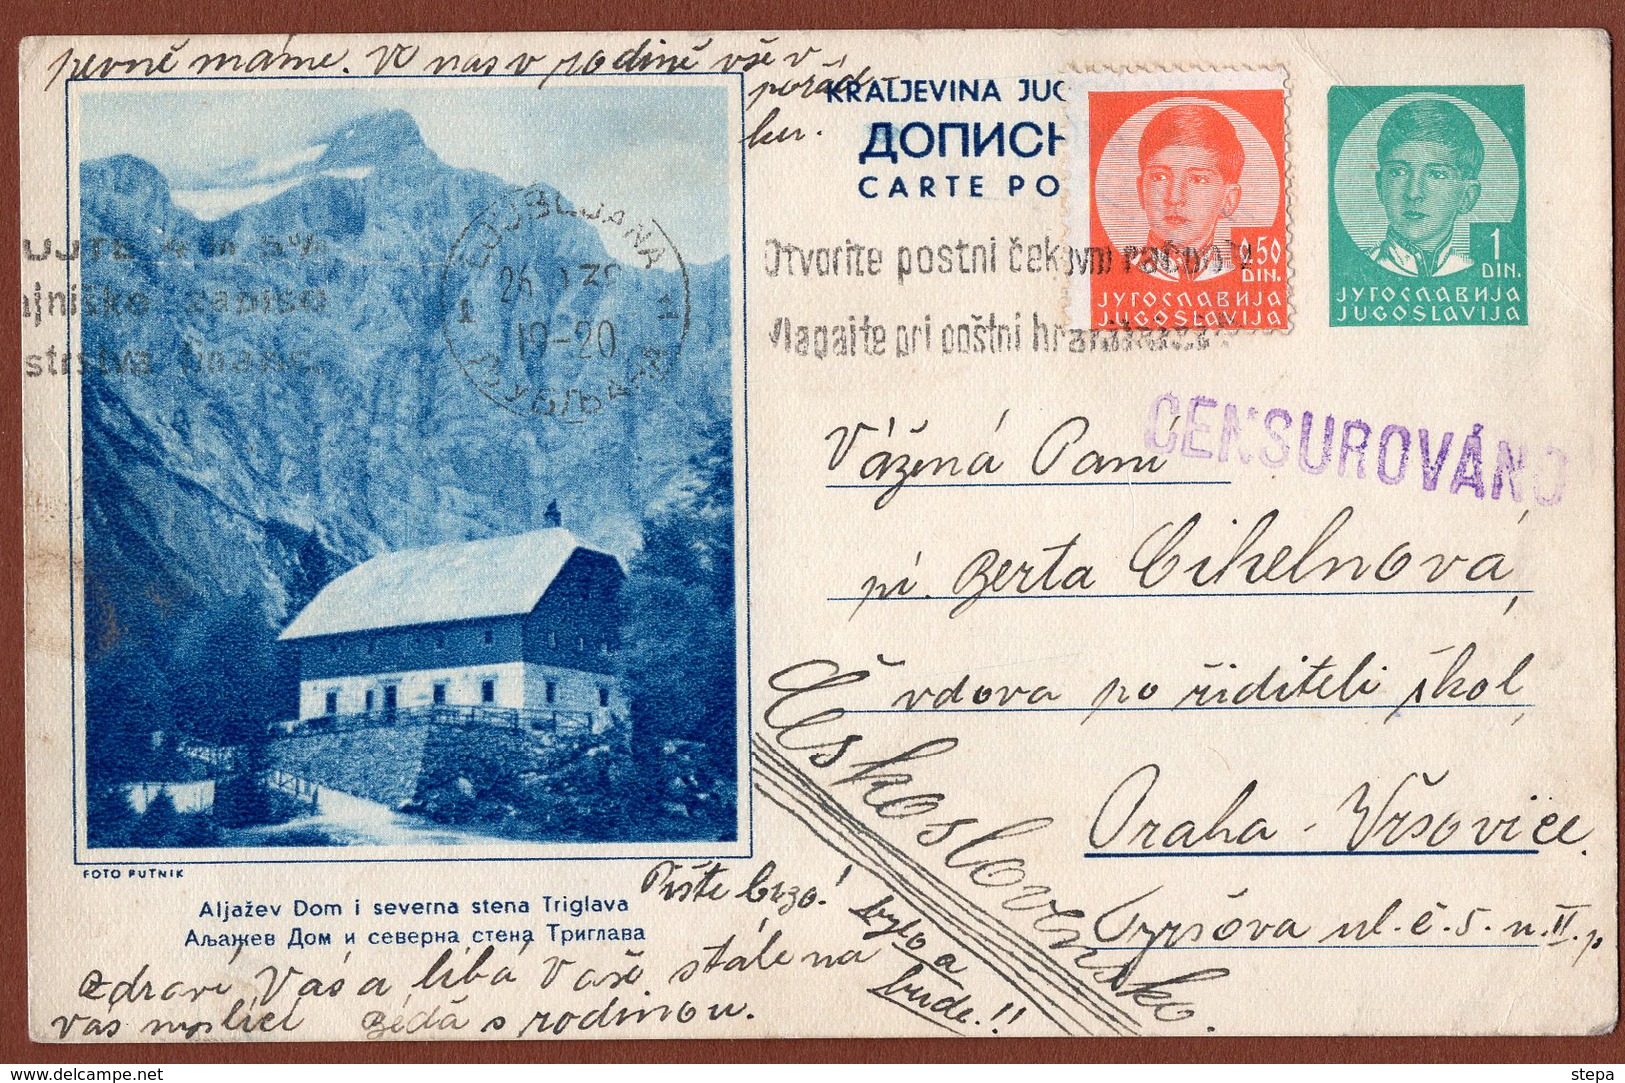 pevně máme. V nás v rodině vše v
pořád-
ku.
KRALJEVINA JUG
ДОПИСН
CARTE PO
0.50
DIN.
ЈУГОСЛАВИЈА
JUGOSLAVIJA
1
DIN.
ЈУГОСЛАВИЈА
JUGOSLAVIJA
LJUBLJANA
19-20
1
Otvorite postni čekovni račun
Vlagajte pri poštni hranilnici
CENSUROVÁNO
Vážená Paní
pí. Berta Cihelnová,
vdova po řiditeli škol,
Praha - Vršovice.
Tyršova ul. č. 5. n. II. p
Československo.
FOTO PUTNIK
Aljažev Dom i severna stena Triglava
Аљажев Дом и северна стена Триглава
Pište brzo!
bylo a
bude.!!
Zdraví Vás a líbá Vaše stále na
vás myslící děda s rodinou.
stepa
www.delcampe.net